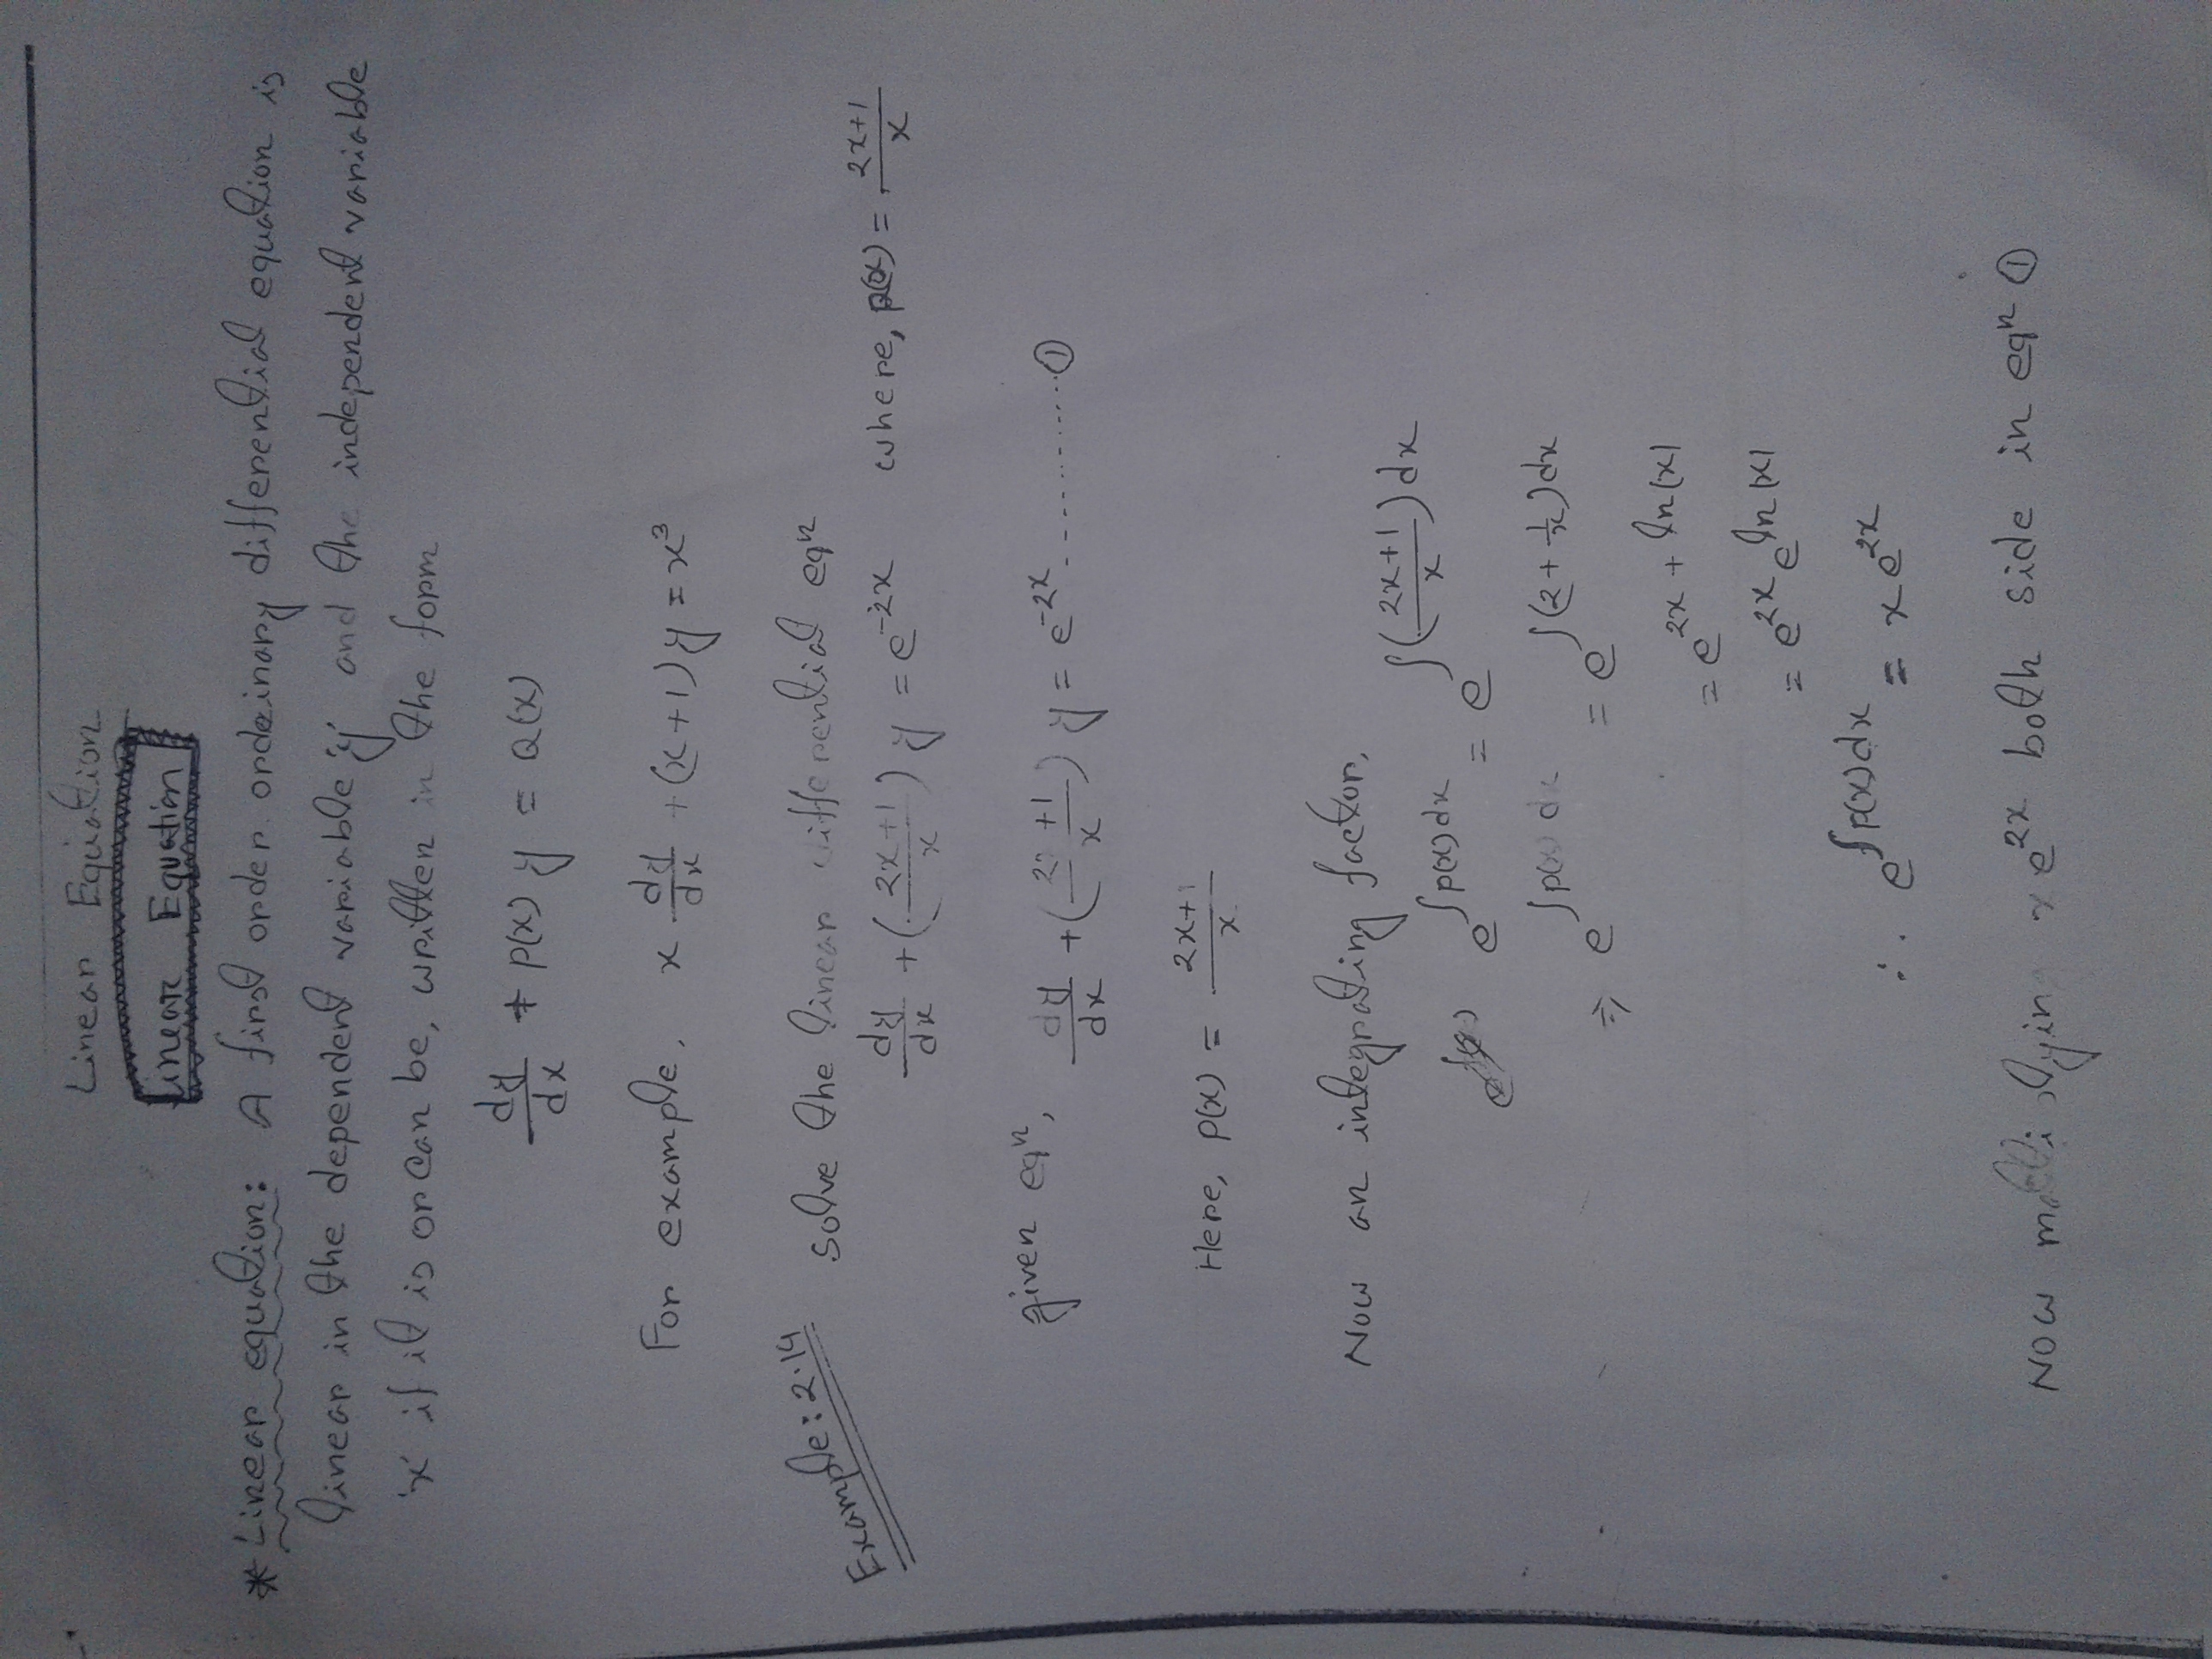 Linear Equation
Linear Equation
* Linear equation: A first order ordinary differential equation is
linear in the dependent variable 'y' and the independent variable
'x' if it is or can be, written in the form
dy/dx + p(x) y = Q(x)
For example, x dy/dx + (x+1) y = x³
Example: 2.14 Solve the linear differential eqⁿ
dy/dx + ((2x+1)/x) y = e^(-2x) where, p(x) = (2x+1)/x
given eqⁿ, dy/dx + ((2x+1)/x) y = e^(-2x) ............ ①
Here, p(x) = (2x+1)/x
Now an integrating factor,
e^(∫p(x)dx) = e^(∫((2x+1)/x)dx)
⇒ e^(∫p(x)dx) = e^(∫(2+1/x)dx)
= e^(2x + ln|x|)
= e^(2x) e^(ln|x|)
∴ e^(∫p(x)dx) = x e^(2x)
Now multiplying x e^(2x) both side in eqⁿ ①